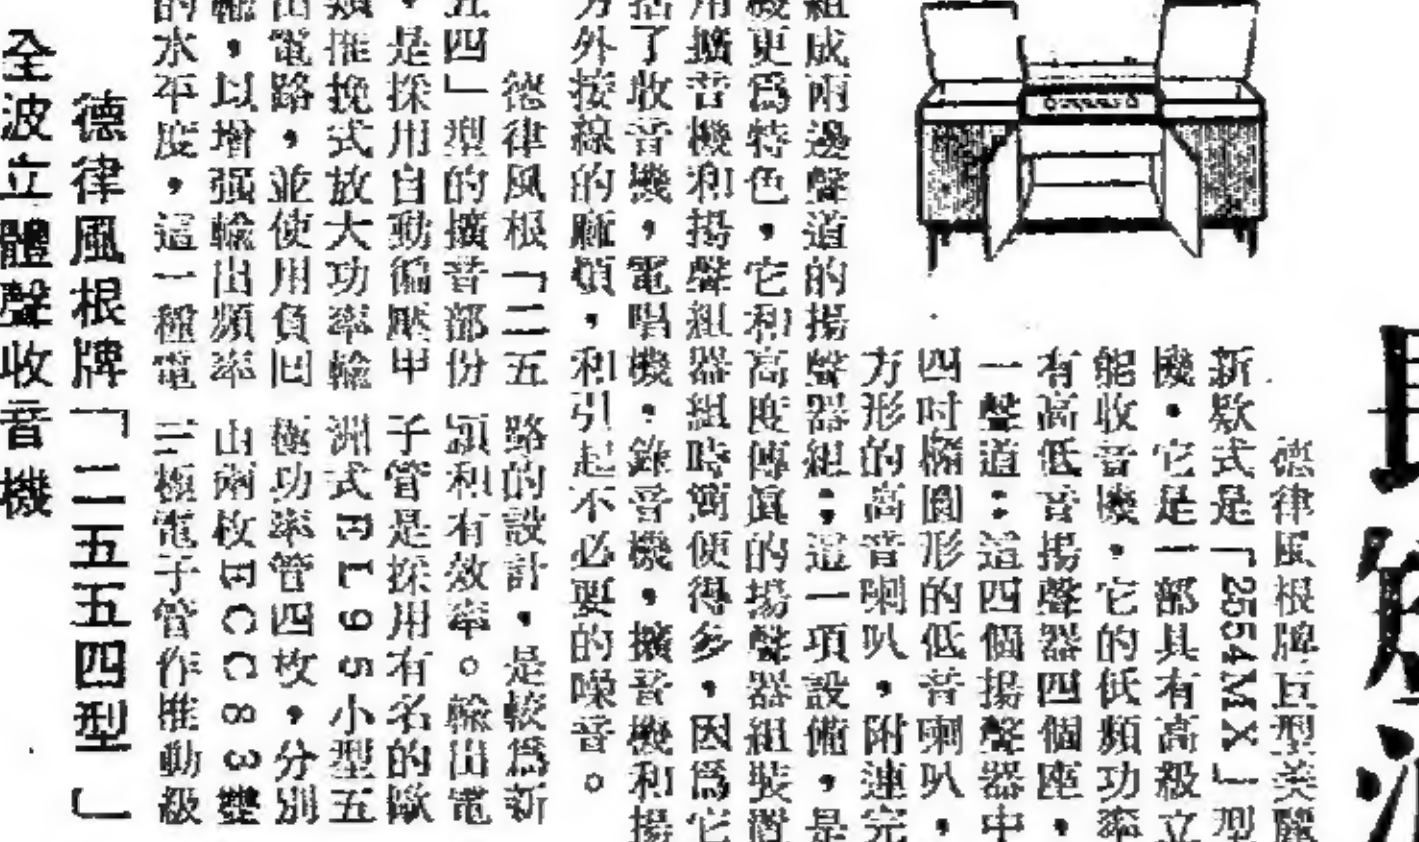 德律風根牌巨型美麗
新欵式是「2554MX」型
機，它是一部具有高級立
能收音機，它的低頻功率
有高低音揚聲器四個座，
一聲道；這四個揚聲器中
四吋橢圓形的低音喇叭，
方形的高音喇叭，附連完
組成兩邊聲道的揚聲器組；這一項設備，是
機更爲特色，它和高度傳眞的揚聲器組裝置
用擴音機和揚聲組器組時簡便得多，因爲它
括了收音機，電唱機，錄音機，擴音機和揚
方外接線的麻煩，和引起不必要的噪音。
德律風根「二五
五四」型的擴音部份
，是採用自動偏壓甲
類推挽式放大功率輸
出電路，並使用負回
輸，以增强輸出頻率
的水平度，這一種電
路的設計，是較爲新
頴和有效率。輸出電
子管是採用有名的歐
洲式EL95小型五
極功率管四枚，分別
由兩枚ECC83雙
三極電子管作推動級
德律風根牌「二五五四型」
全波立體聲收音機